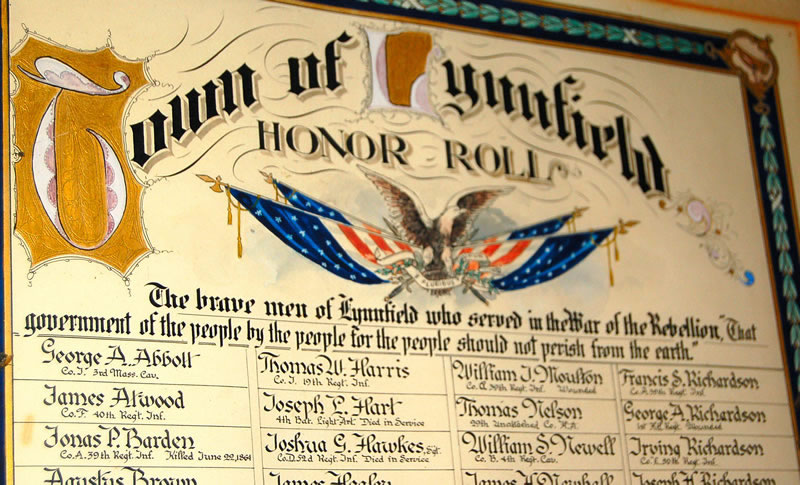 Town of Lynnfield
HONOR ROLL
PLURIBUS
The brave men of Lynnfield who served in the War of the Rebellion, "That
government of the people by the people for the people should not perish from the earth."
George A. Abbott
Co. I. 3rd Mass. Cav.
James Atwood
Co. F. 40th Regt. Inf.
Jonas P. Barden
Co. A. 39th Regt. Inf. Killed June 22, 1864
Brown
Thomas W. Harris
Co. I. 19th Regt. Inf.
Joseph L. Hart
4th Bat. Light Art. Died in Service
Joshua G. Hawkes, Sgt.
Co. D. 52d Regt. Inf. Died in Service
James
William J. Moulton
Regt. Inf. Wounded
Thomas Nelson
29th Unattached Co. H.A.
William S. Newell
Co. B. 4th Regt. Cav.
James
Francis S. Richardson
Regt. Inf.
George A. Richardson
1st H. Regt. Wounded
Irving Richardson
Co. E. 50th Regt. Inf.
Joseph H. Richardson